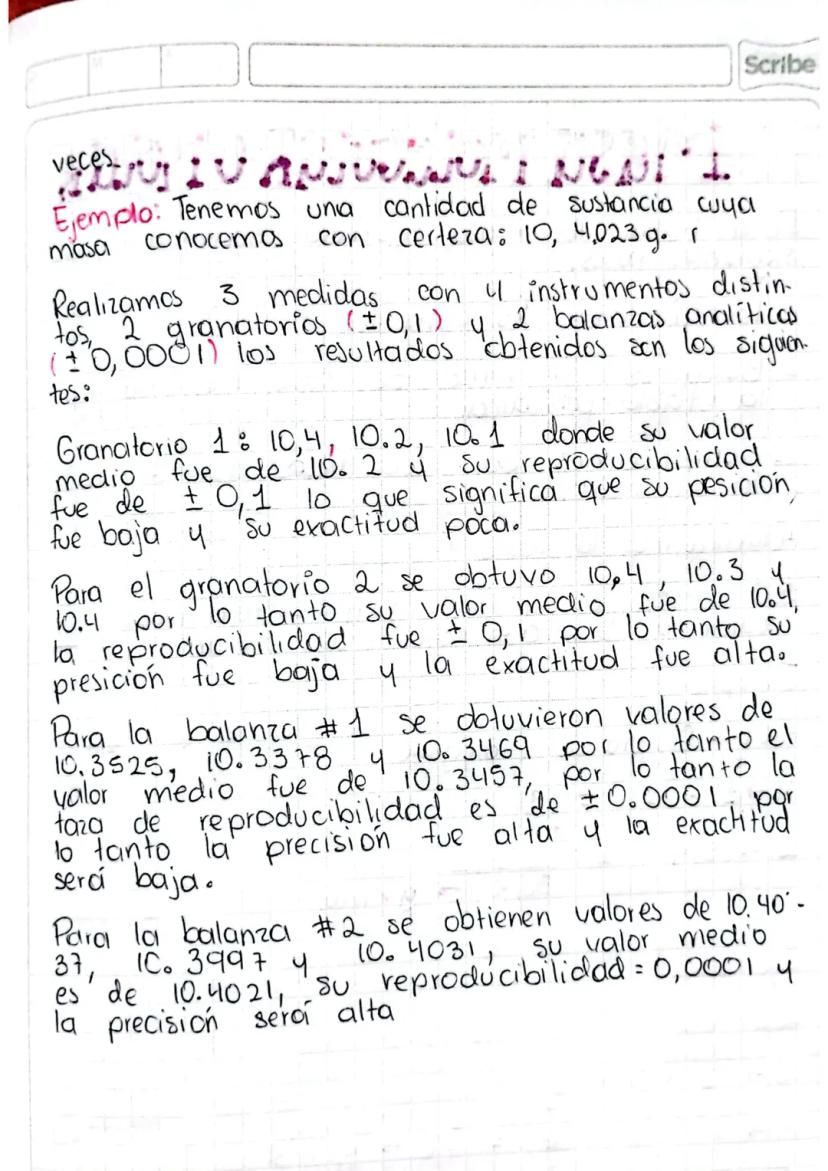 Scribe
veces
Ejemplo: Tenemos una cantidad de sustancia cuya
masa conocemos con certeza: 10, 4,023 g.
Realizamos 3 medidas con 4 instrumentos distin-
tos, 2 granatorios (±0,1) y 2 balanzas analíticas
(±0,0001) los resultados obtenidos son los siguien-
tes:
Granatorio 1: 10,4, 10.2, 10.1 donde su valor
medio fue de 10.2 y su reproducibilidad
fue de ±0,1 lo que significa que su pesición
fue baja y su exactitud poca.
Para el granatorio 2 se obtuvo 10,4, 10.3 y
10.4 por lo tanto su valor medio fue de 10.4,
la reproducibilidad fue ±0,1 por lo tanto su
presición fue baja y la exactitud fue alta.
Para la balanza #1 se obtuvieron valores de
10.3525, 10.3378 y 10.3469 por lo tanto el
valor medio fue de 10.3457, por lo tanto la
taza de reproducibilidad es de ±0.0001 por
lo tanto la precisión fue alta y la exactitud
será baja.
Para la balanza #2 se obtienen valores de 10.40-
37, 10.3997 y 10.4031, su valor medio
es de 10.4021, su reproducibilidad = 0,0001 y
la precisión será alta